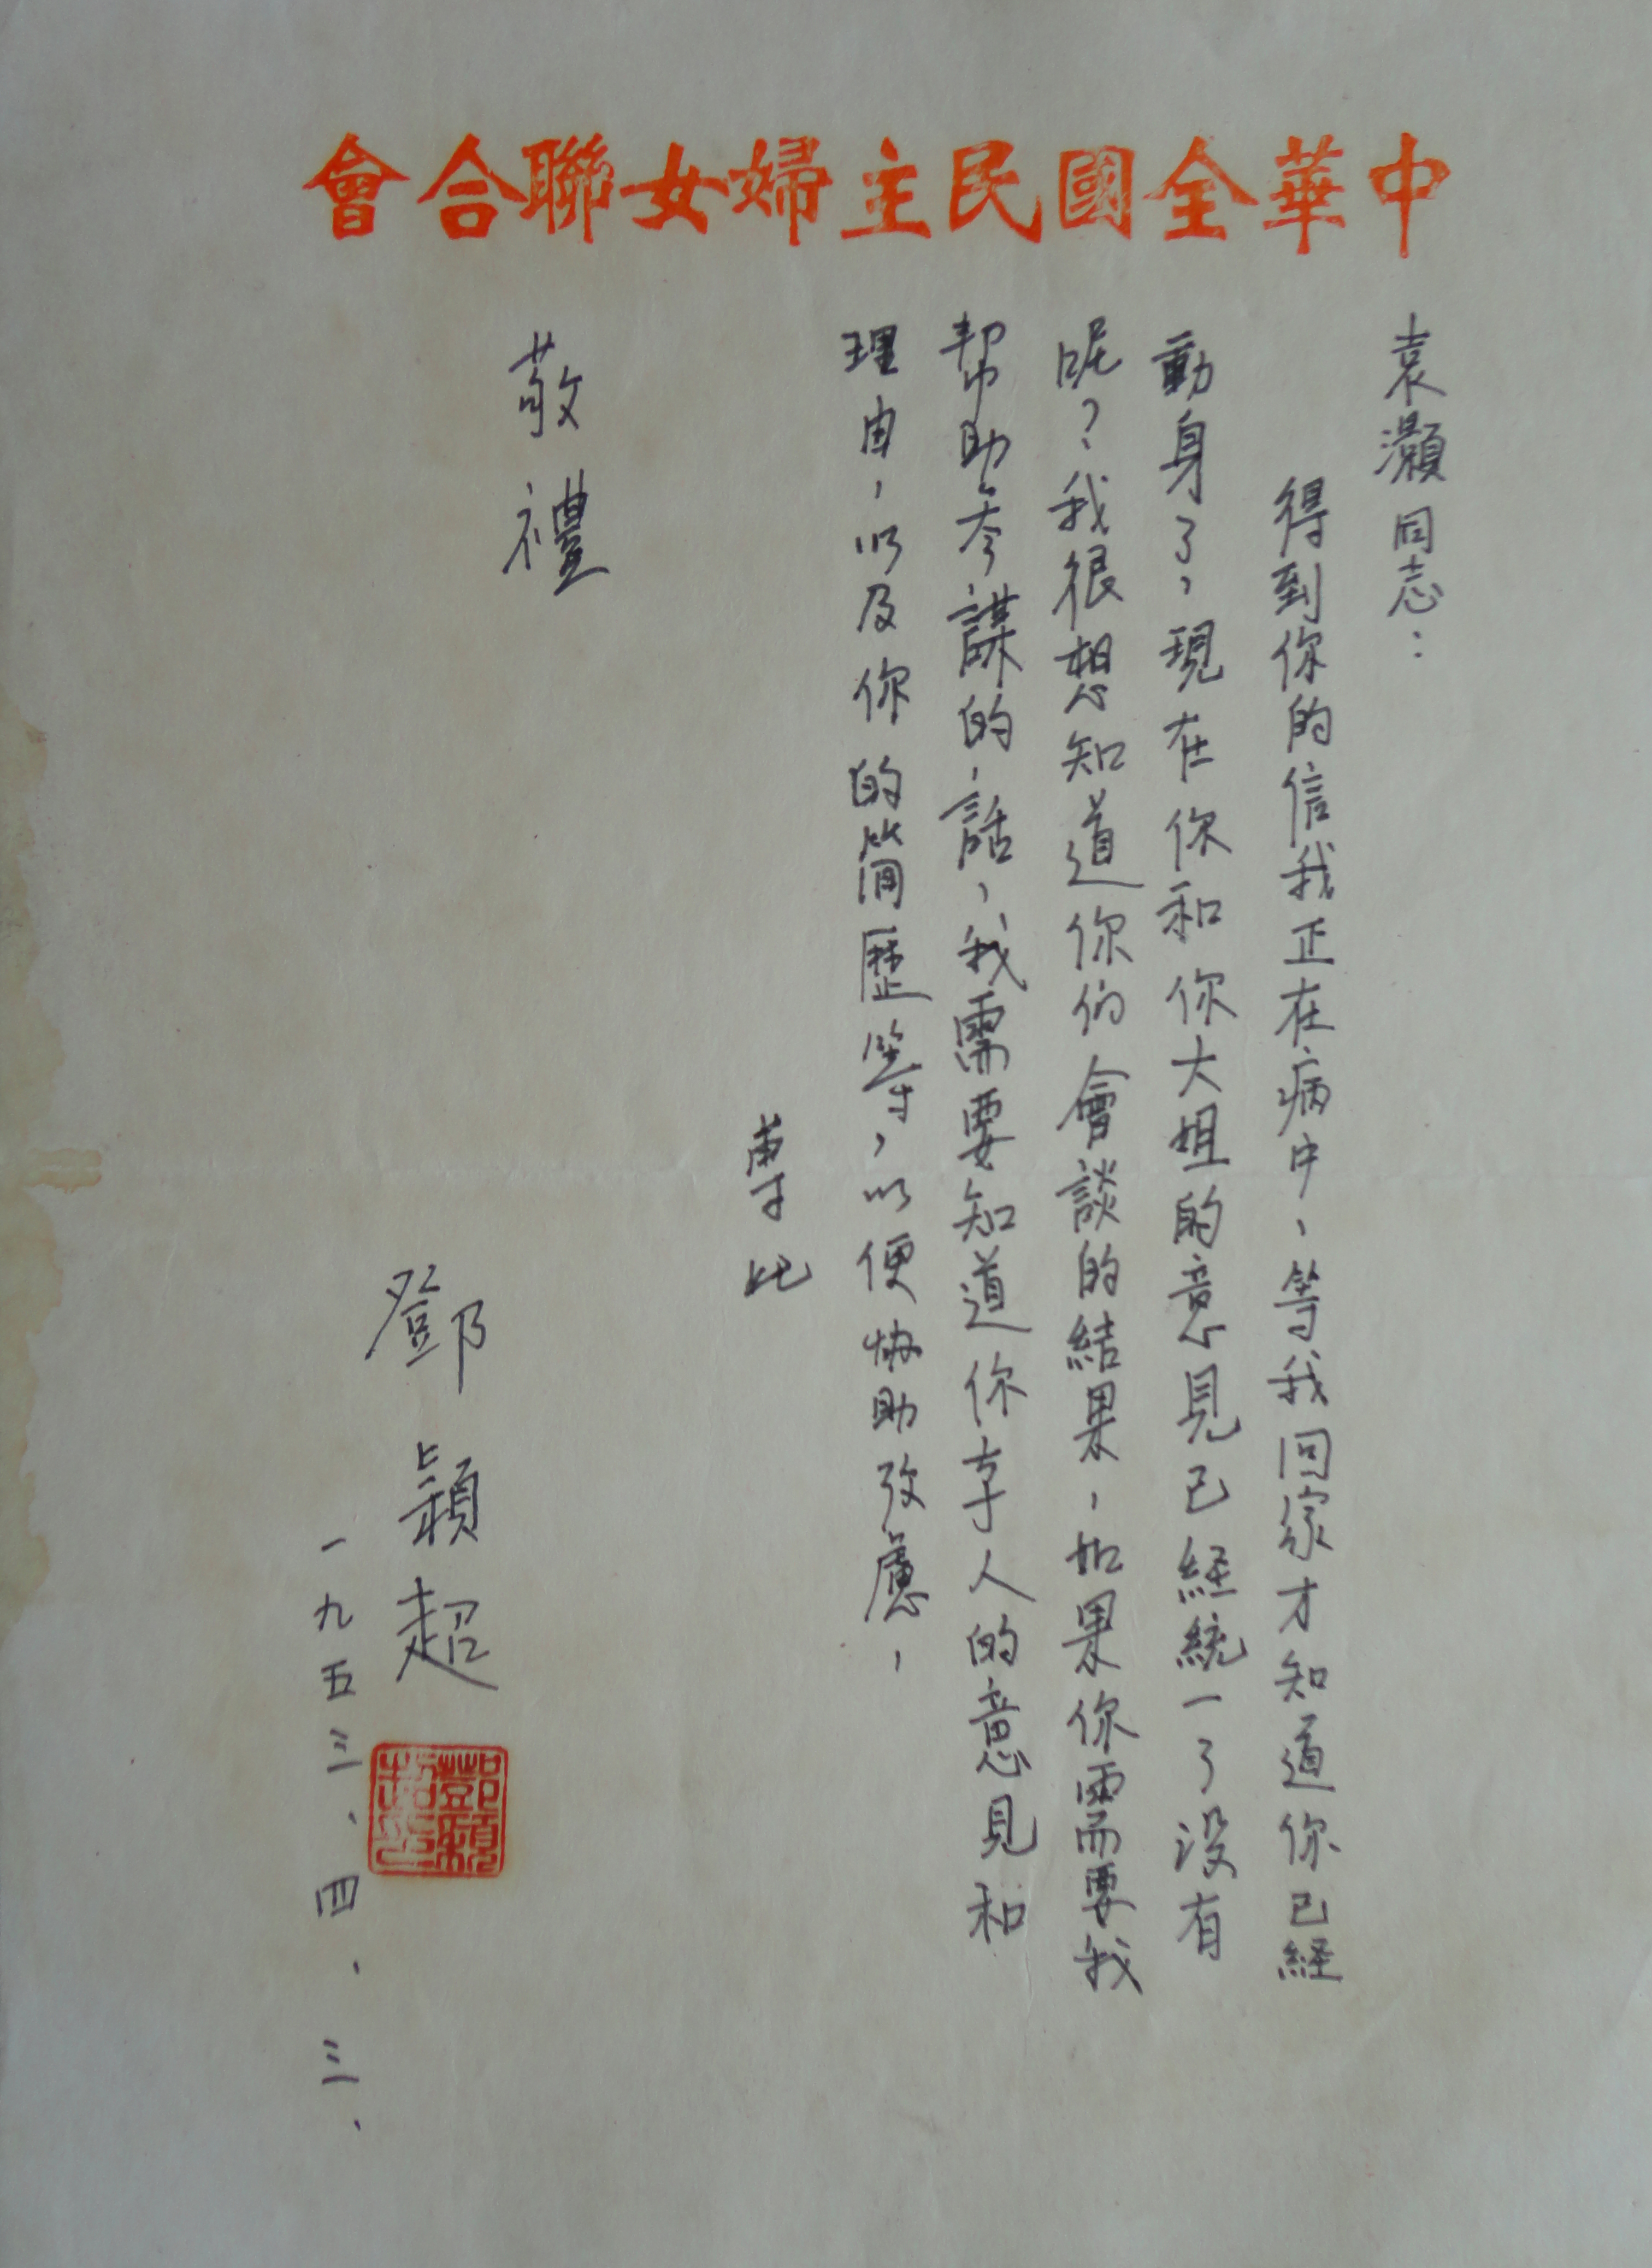 中華全國民主婦女聯合會
袁灝同志：
得到你的信我正在病中，等我回家才知道你已経
動身了，現在你和你大姐的意見已経統一了沒有
呢？我很想知道你们會談的結果，如果你需要我
帮助参謀的話，我需要知道你本人的意見和
理由，以及你的簡歷等，以便協助攷慮，
專此
敬禮
鄧穎超
一九五三、四、三、
鄧穎超